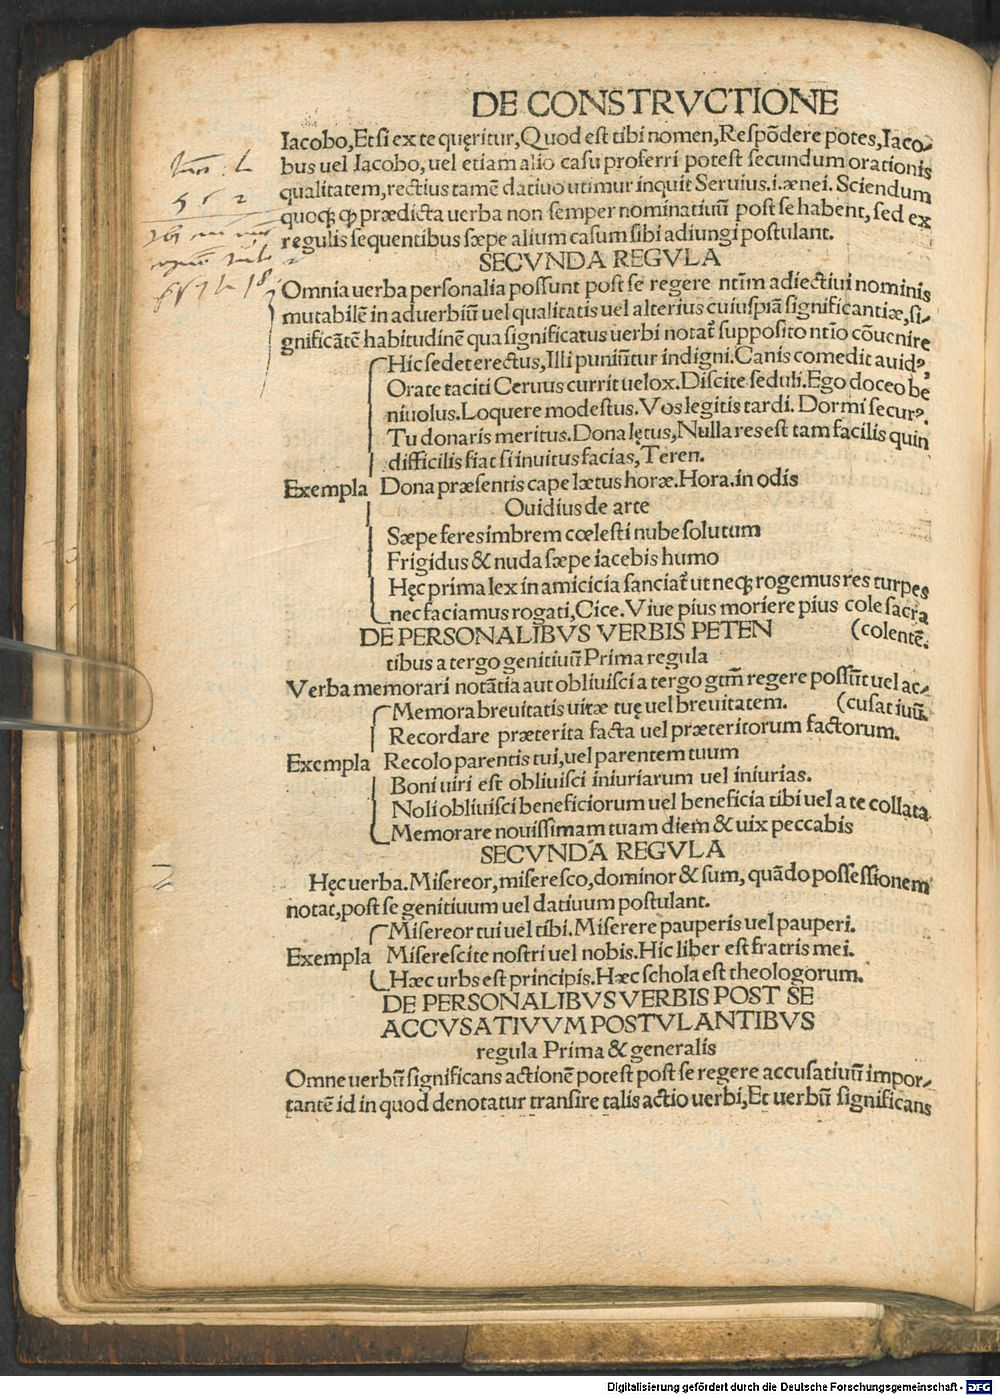 DE CONSTRVCTIONE
Iacobo,Et si ex te quęritur,Quod est tibi nomen,Respōdere potes,Iaco-
bus uel Iacobo,uel etiam alio casu proferri potest secundum orationis
qualitatem,rectius tamē datiuo utimur inquit Seruius.i.ænei. Sciendum
quoqꝫ ꝙ prædicta uerba non semper nominatiuū post se habent, sed ex
regulis sequentibus sæpe alium casum sibi adiungi postulant.
SECVNDA REGVLA
Omnia uerba personalia possunt post se regere ntīm adiectiui nominis
mutabilē in aduerbiū uel qualitatis uel alterius cuiuspiā significantiæ,si-
gnificātē habitudinē qua significatus uerbi notat᷑ supposito ntīo cōuenire
Hic sedet erectus,Illi puniūtur indigni.Canis comedit auidꝰ,
Orate taciti Ceruus currit uelox.Discite seduli.Ego doceo be
niuolus.Loquere modestus.Vos legitis tardi. Dormi securꝰ.
Tu donaris meritus.Dona lętus,Nulla res est tam facilis quin
difficilis fiat si inuitus facias,Teren.
Exempla Dona præsentis cape lætus horæ.Hora.in odis
Ouidius de arte
Sæpe feres imbrem cœlesti nube solutum
Frigidus & nuda sæpe iacebis humo
Hęc prima lex in amicicia sanciat᷑ ut neqꝫ rogemus res turpes
nec faciamus rogati,Cice.Viue pius moriere pius cole sacra
DE PERSONALIBVS VERBIS PETEN (colentē.
tibus a tergo genitiuū Prima regula
Verba memorari notātia aut obliuisci a tergo gtm̄ regere possūt uel ac-
Memora breuitatis uitæ tuę uel breuitatem. (cusatiuū.
Recordare præterita facta uel præteritorum factorum.
Exempla Recolo parentis tui,uel parentem tuum
Boni uiri est obliuisci iniuriarum uel iniurias.
Noli obliuisci beneficiorum uel beneficia tibi uel a te collata
Memorare nouissimam tuam diem & uix peccabis
SECVNDA REGVLA
Hęc uerba.Misereor,miseresco,dominor & sum, quādo possessionem
notat,post se genitiuum uel datiuum postulant.
Misereor tui uel tibi.Miserere pauperis uel pauperi.
Exempla Miserescite nostri uel nobis.Hic liber est fratris mei.
Hæc urbs est principis.Hæc schola est theologorum.
DE PERSONALIBVS VERBIS POST SE
ACCVSATIVVM POSTVLANTIBVS
regula Prima & generalis
Omne uerbū significans actionē potest post se regere accusatiuū impor-
tantē id in quod denotatur transire talis actio uerbi,Et uerbū significans
Digitalisierung gefördert durch die Deutsche Forschungsgemeinschaft - DFG